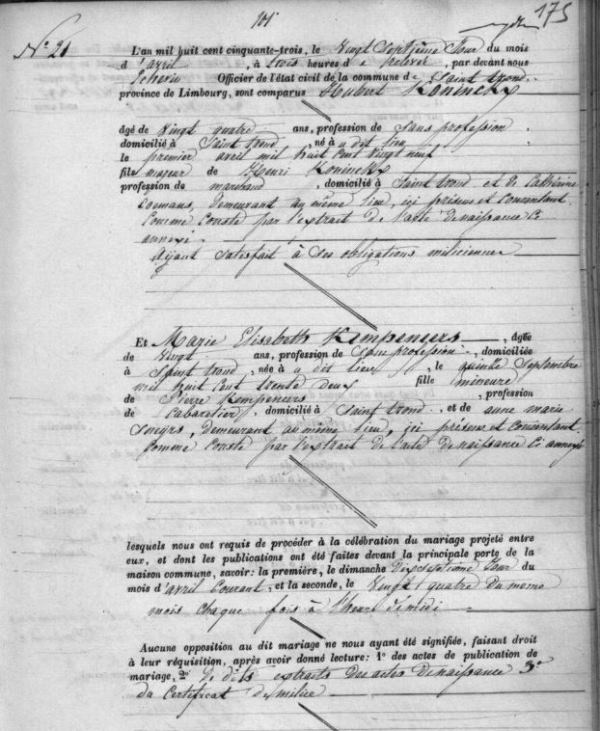 101
175
N° 21
L'an mil huit cent cinquante-trois, le Vingt Septième Jour du mois
d'avril, à trois heures de relevée, par devant nous
Echevin Officier de l'état civil de la commune de Saint trond
province de Limbourg, sont comparus Hubert Koninckx
âgé de vingt quatre ans, profession de Sans profession
domicilié à Saint trond, né à u dit lieu
le premier avril mil huit cent vingt neuf
fils majeur de Henri Koninckx
profession de marchand, domicilié à Saint trond et de Cathérine
demeurant au même lieu, ici présens et consentant
Comme Conste par l'extrait de l'acte de naissance Ci
annexé
Ayant satisfait à Ses obligations miliciennes
Et Marie Elisabeth Kempeneurs, âgée
de Vingt ans, profession de Sans profession, domiciliée
à Saint trond, née à u dit lieu, le quinze Septembre
mil huit Cent trente deux fille mineure
de Pierre Kempeneurs, profession
de Cabaretier, domicilié à Saint trond et de anne marie
demeurant au même lieu, ici présens et Consentant
Comme Conste par l'extrait de l'acte de naissance Ci annexé
lesquels nous ont requis de procéder à la célébration du mariage projeté entre
eux, et dont les publications ont été faites devant la principale porte de la
maison commune, savoir: la première, le dimanche Dixseptième Jour du
mois d'avril Courant, et la seconde, le Vingt quatre du même
mois chaque fois à l'heure de midi
Aucune opposition au dit mariage ne nous ayant été signifiée, faisant droit
à leur réquisition, après avoir donné lecture: 1° des actes de publication de
mariage, 2° de dits extraits des actes de naissance 3°
du Certificat de milice